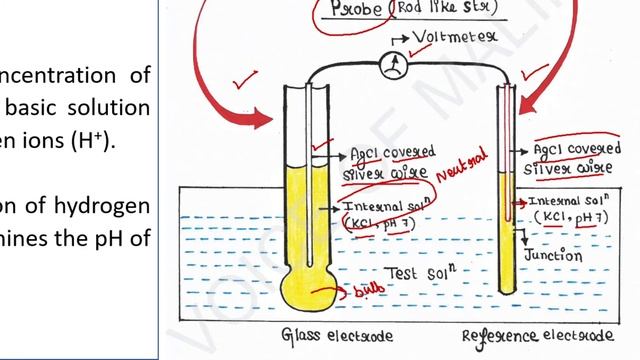 ncentration of
basic solution
en ions (H⁺).
on of hydrogen
nines the pH of
Probe (Rod like str)
Voltmeter
AgCl covered
Silver wire
Neutral
Internal solⁿ
(KCl, pH 7)
Test solⁿ
bulb
Glass electrode
AgCl covered
Silver wire
Internal solⁿ
(KCl, pH 7)
Junction
Reference electrode